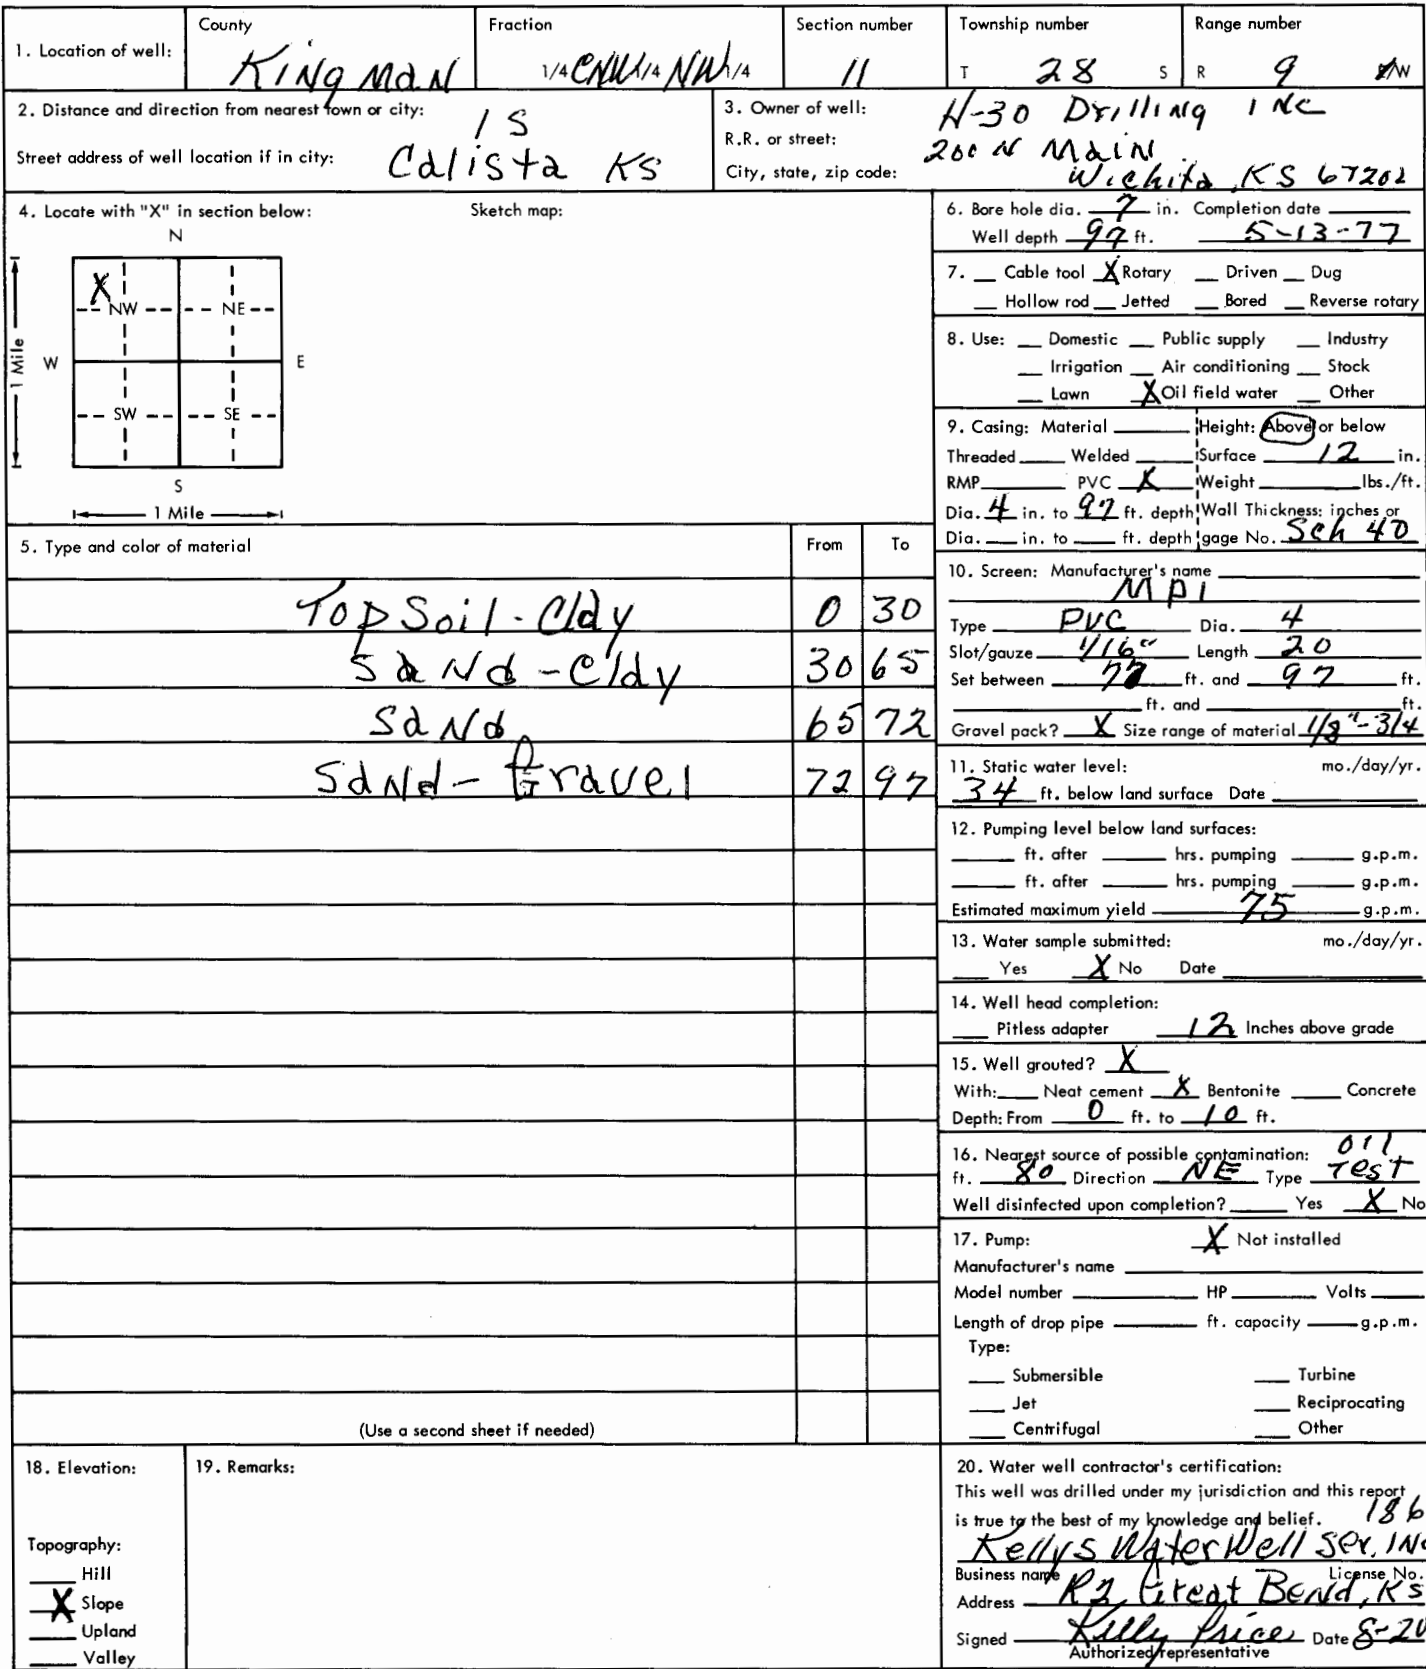 1. Location of well: County Kingman Fraction 1/4 CNW 1/4 NW 1/4 Section number 11 Township number T 28 S Range number R 9 E/W
2. Distance and direction from nearest town or city: 1 S
Street address of well location if in city: Calista KS
3. Owner of well: H-30 Drilling INC
R.R. or street: 200 N Main
City, state, zip code: Wichita, KS 67202
4. Locate with "X" in section below: Sketch map:
N
X
NW NE
W E
1 Mile
SW SE
S
1 Mile
5. Type and color of material From To
Top Soil - Clay 0 30
Sand - Clay 30 65
Sand 65 72
Sand - Gravel 72 97
(Use a second sheet if needed)
6. Bore hole dia. 7 in. Completion date
Well depth 97 ft. 5-13-77
7. Cable tool X Rotary Driven Dug
Hollow rod Jetted Bored Reverse rotary
8. Use: Domestic Public supply Industry
Irrigation Air conditioning Stock
Lawn X Oil field water Other
9. Casing: Material Height: Above or below
Threaded Welded Surface 12 in.
RMP PVC X Weight lbs./ft.
Dia. 4 in. to 97 ft. depth Wall Thickness: inches or
Dia. in. to ft. depth gage No. Sch 40
10. Screen: Manufacturer's name
MPI
Type PVC Dia. 4
Slot/gauze 1/16" Length 20
Set between 77 ft. and 97 ft.
ft. and ft.
Gravel pack? X Size range of material 1/8"-3/4
11. Static water level: mo./day/yr.
34 ft. below land surface Date
12. Pumping level below land surfaces:
ft. after hrs. pumping g.p.m.
ft. after hrs. pumping g.p.m.
Estimated maximum yield 75 g.p.m.
13. Water sample submitted: mo./day/yr.
Yes X No Date
14. Well head completion:
Pitless adapter 12 Inches above grade
15. Well grouted? X
With: Neat cement X Bentonite Concrete
Depth: From 0 ft. to 10 ft.
16. Nearest source of possible contamination: oil
ft. 80 Direction NE Type Test
Well disinfected upon completion? Yes X No
17. Pump: X Not installed
Manufacturer's name
Model number HP Volts
Length of drop pipe ft. capacity g.p.m.
Type:
Submersible Turbine
Jet Reciprocating
Centrifugal Other
18. Elevation:
Topography:
Hill
X Slope
Upland
Valley
19. Remarks:
20. Water well contractor's certification:
This well was drilled under my jurisdiction and this report
is true to the best of my knowledge and belief. 186
Kellys Water Well Ser. INC
Business name License No.
Address R2 Great Bend, Ks
Signed Kelly Price Date 8-20
Authorized representative